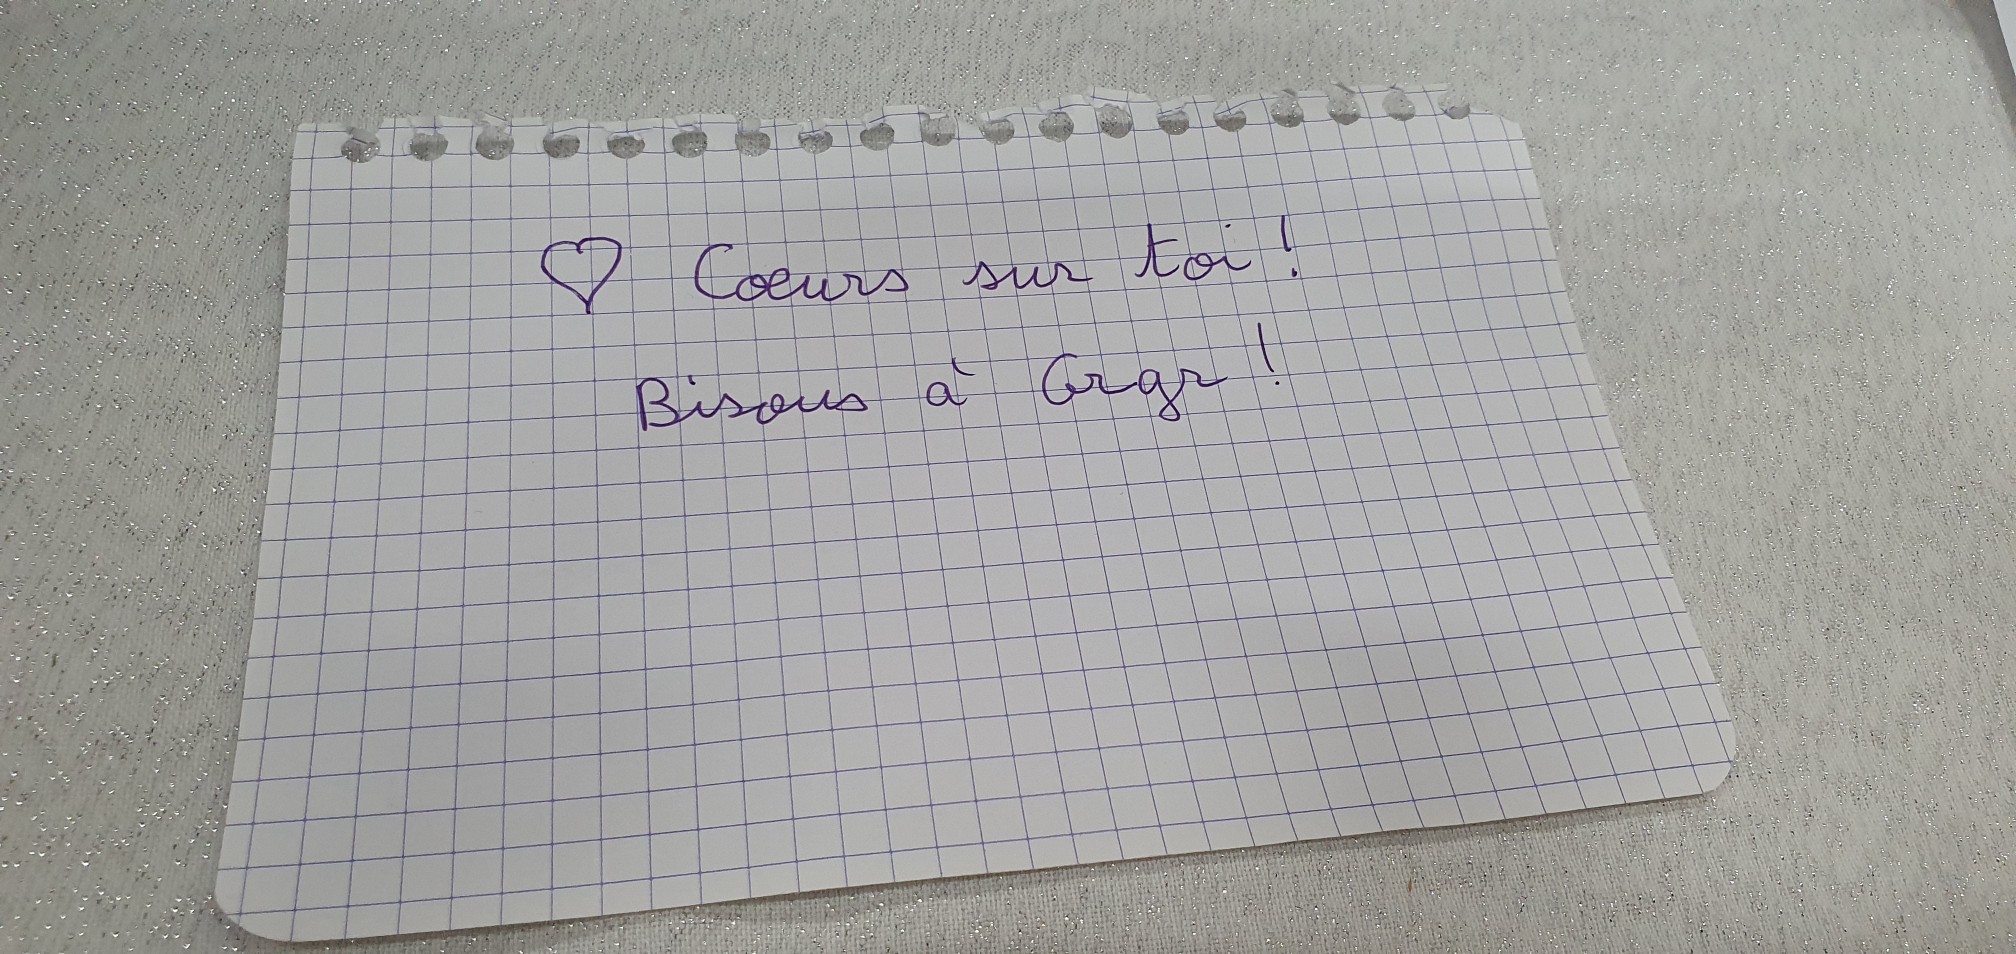 ♡ Coeurs sur toi !
Bisous à Grgr !